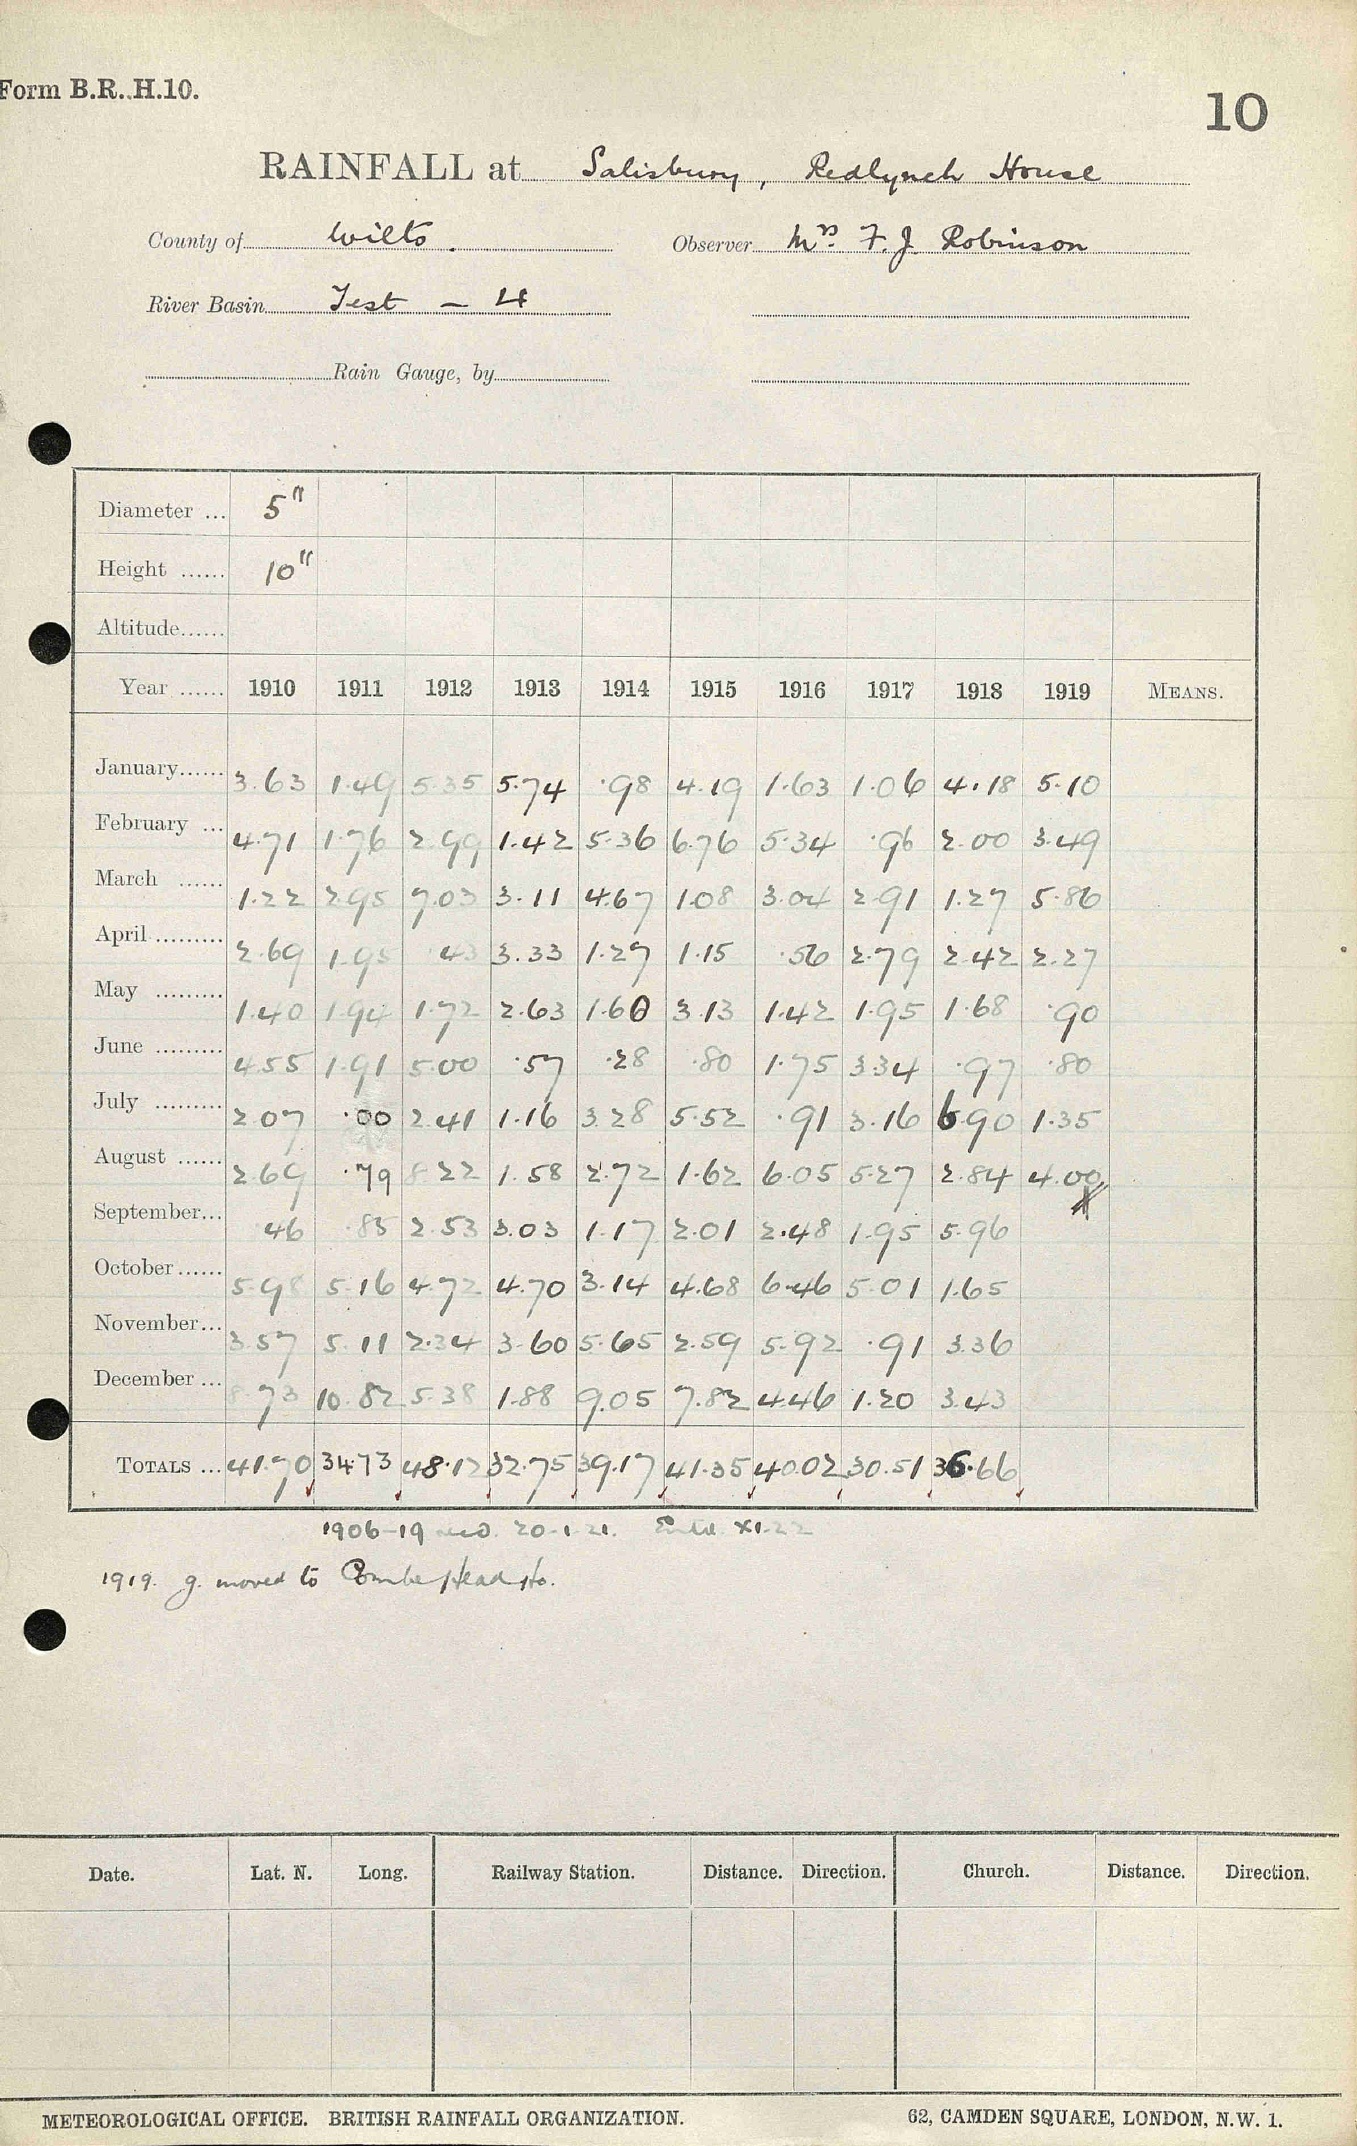 Form B.R. H.10.
10
RAINFALL at Salisbury, Redlynch House
County of Wilts. Observer Mrs. F. J. Robinson
River Basin Test - 4
Rain Gauge, by
Diameter ... 5"
Height ...... 10"
Altitude......
Year ...... 1910 1911 1912 1913 1914 1915 1916 1917 1918 1919 MEANS.
January...... 3.63 1.49 5.35 5.74 .98 4.19 1.63 1.06 4.18 5.10
February ... 4.71 1.76 2.99 1.42 5.36 6.76 5.34 .96 2.00 3.49
March ...... 1.22 2.95 7.03 3.11 4.67 1.08 3.04 2.91 1.27 5.86
April ......... 2.69 1.95 .43 3.33 1.27 1.15 .56 2.79 2.42 2.27
May ......... 1.40 1.94 1.72 2.63 1.60 3.13 1.42 1.95 1.68 .90
June ......... 4.55 1.91 5.00 .57 .28 .80 1.75 3.34 .97 .80
July ......... 2.07 .00 2.41 1.16 3.28 5.52 .91 3.16 6.90 1.35
August ...... 2.69 .79 8.22 1.58 2.72 1.62 6.05 5.27 2.84 4.00
September... .46 .85 2.53 3.03 1.17 2.01 2.48 1.95 5.96
October...... 5.98 5.16 4.72 4.70 3.14 4.68 6.46 5.01 1.65
November... 3.57 5.11 2.34 3.60 5.65 2.59 5.92 .91 3.36
December ... 8.73 10.82 5.38 1.88 9.05 7.82 4.46 1.20 3.43
TOTALS ... 41.70 34.73 48.12 32.75 39.17 41.35 40.02 30.51 36.66
1906-19 20.1.21. Entd. XI.22
1919. g. moved to Combe Head Ho.
Date. Lat. N. Long. Railway Station. Distance. Direction. Church. Distance. Direction.
METEOROLOGICAL OFFICE. BRITISH RAINFALL ORGANIZATION. 62, CAMDEN SQUARE, LONDON, N.W. 1.